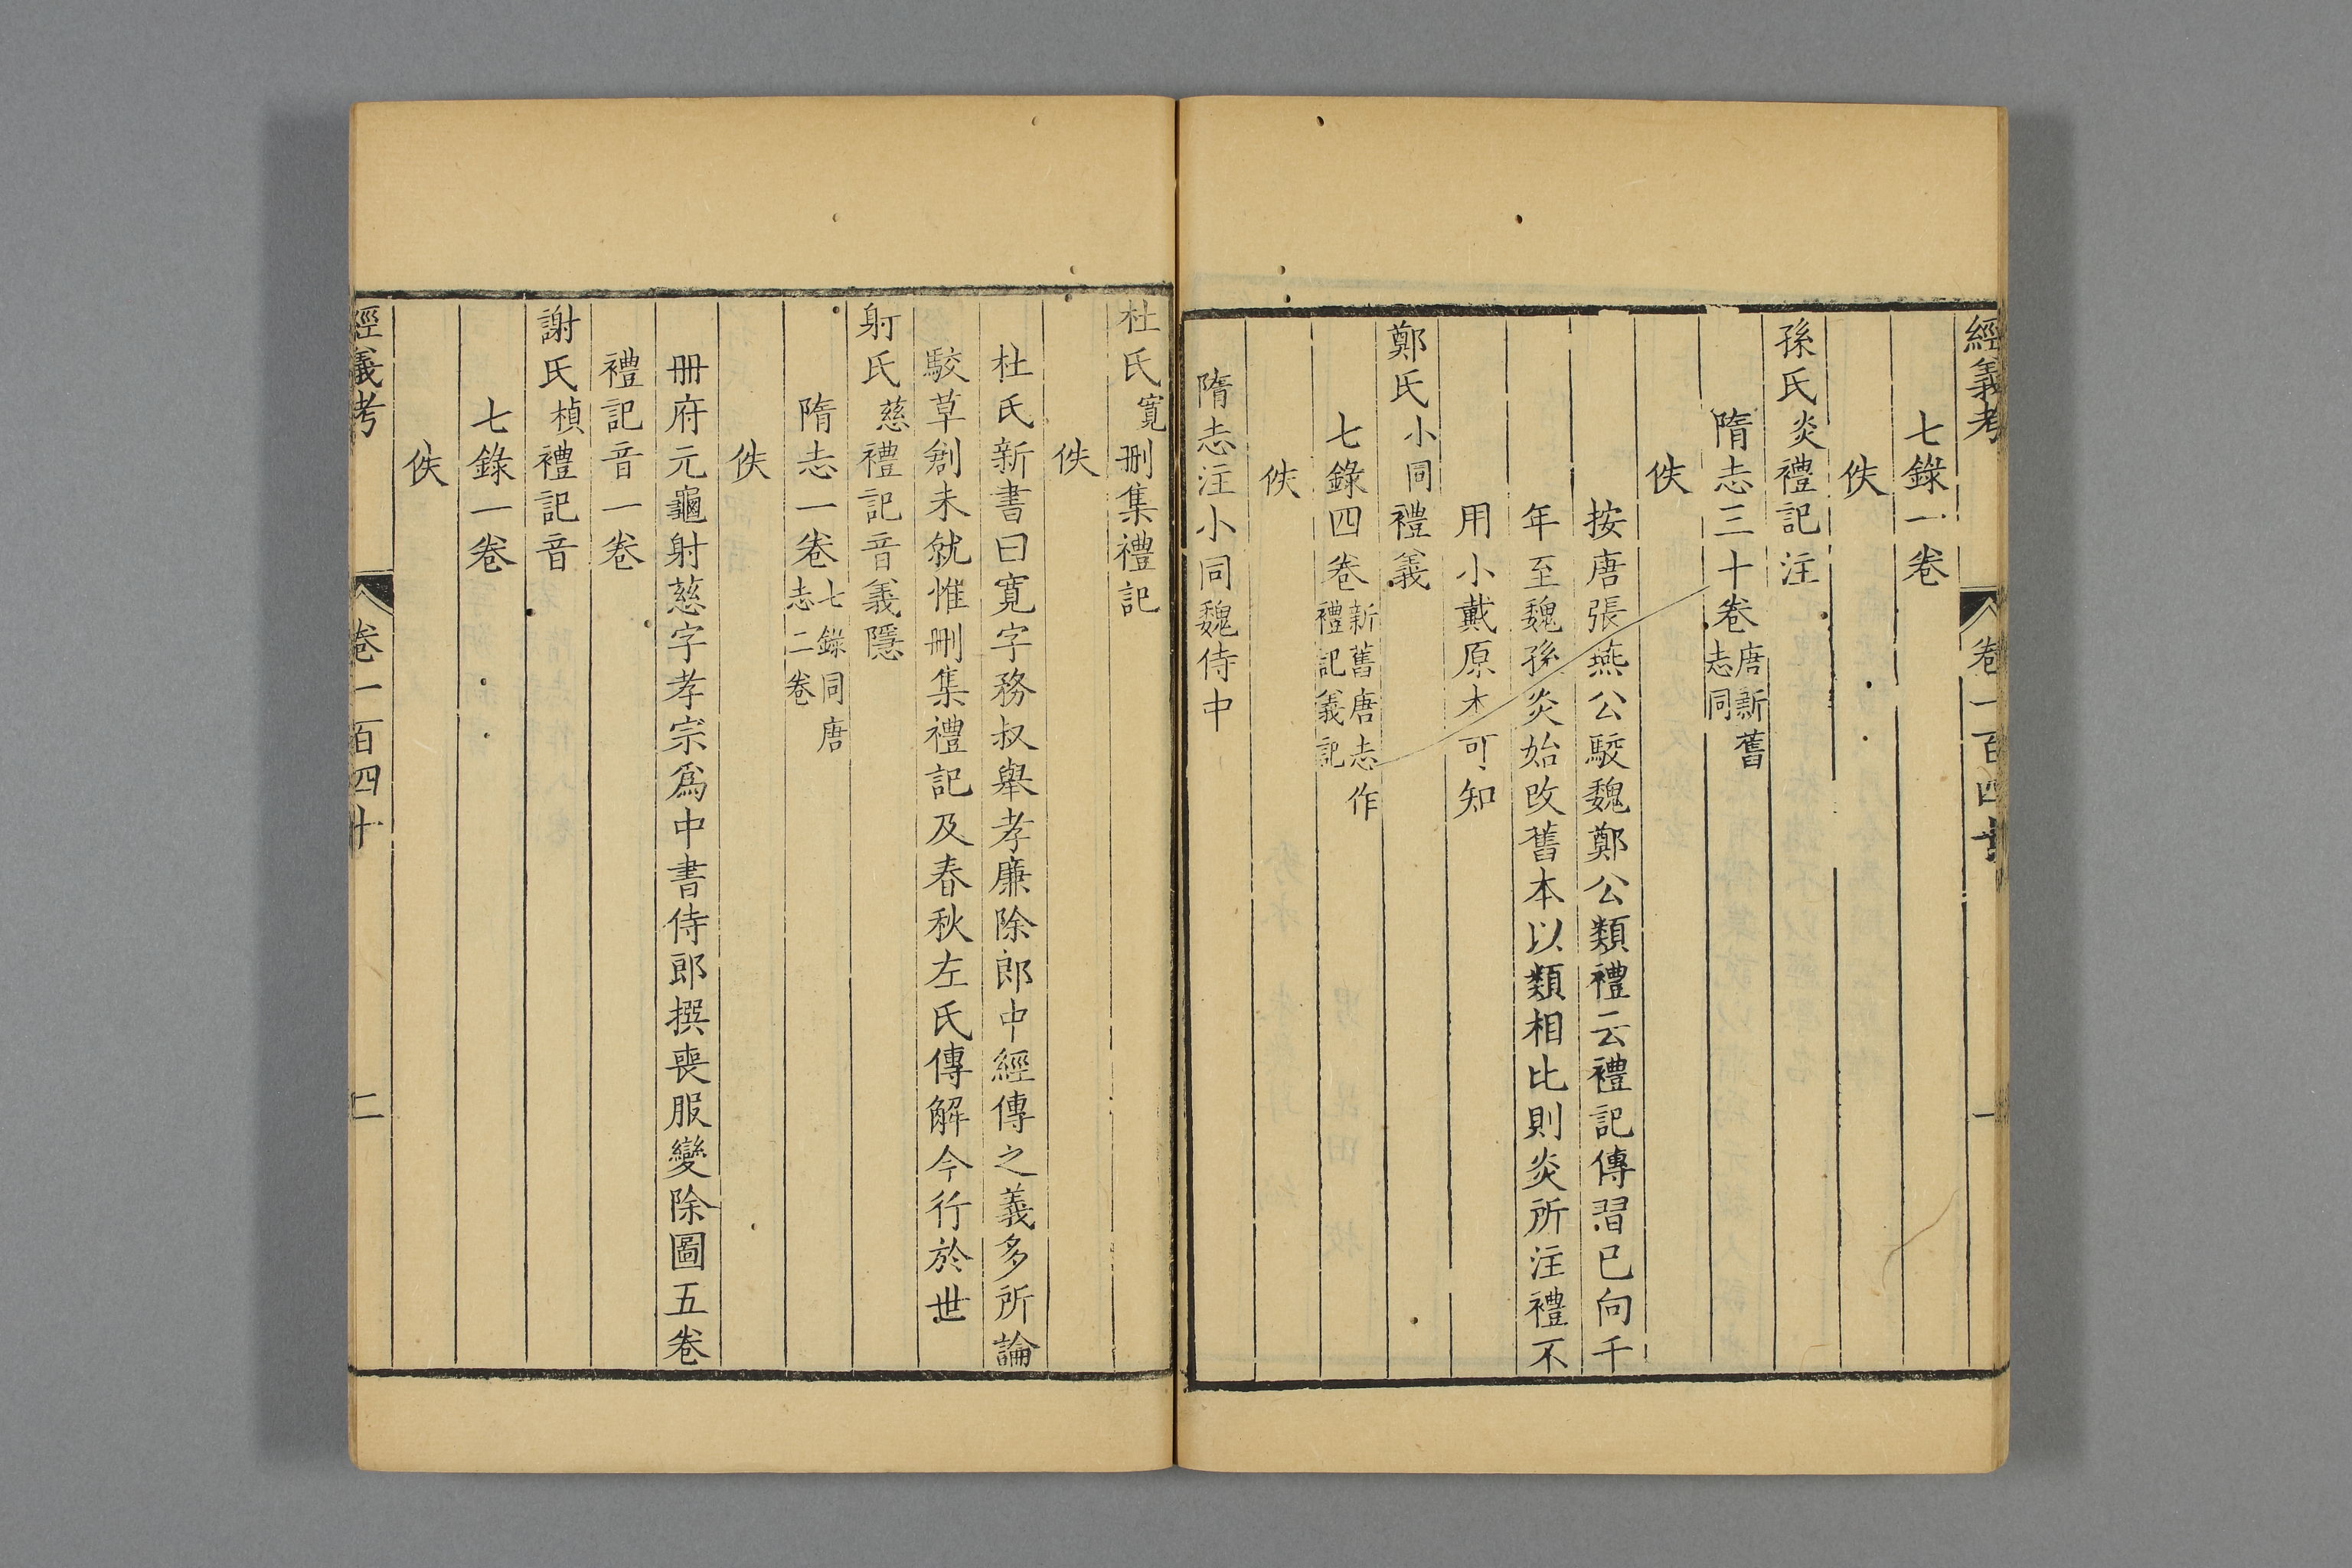 經義考 卷一百四十 一
七錄一卷
佚
孫氏炎禮記注
隋志三十卷唐新舊志同
佚
按唐張燕公駮魏鄭公類禮云禮記傳習已向千
年至魏孫炎始改舊本以類相比則炎所注禮不
用小戴原本可知
鄭氏小同禮義
七錄四卷新舊唐志作禮記義記
佚
隋志注小同魏侍中
杜氏寬刪集禮記
佚
杜氏新書曰寬字務叔舉孝廉除郎中經傳之義多所論
駮草創未就惟刪集禮記及春秋左氏傳解今行於世
射氏慈禮記音義隱
隋志一卷七錄同唐志二卷
佚
冊府元龜射慈字孝宗爲中書侍郎撰喪服變除圖五卷
禮記音一卷
謝氏楨禮記音
七錄一卷
佚
經義考 卷一百四十 二